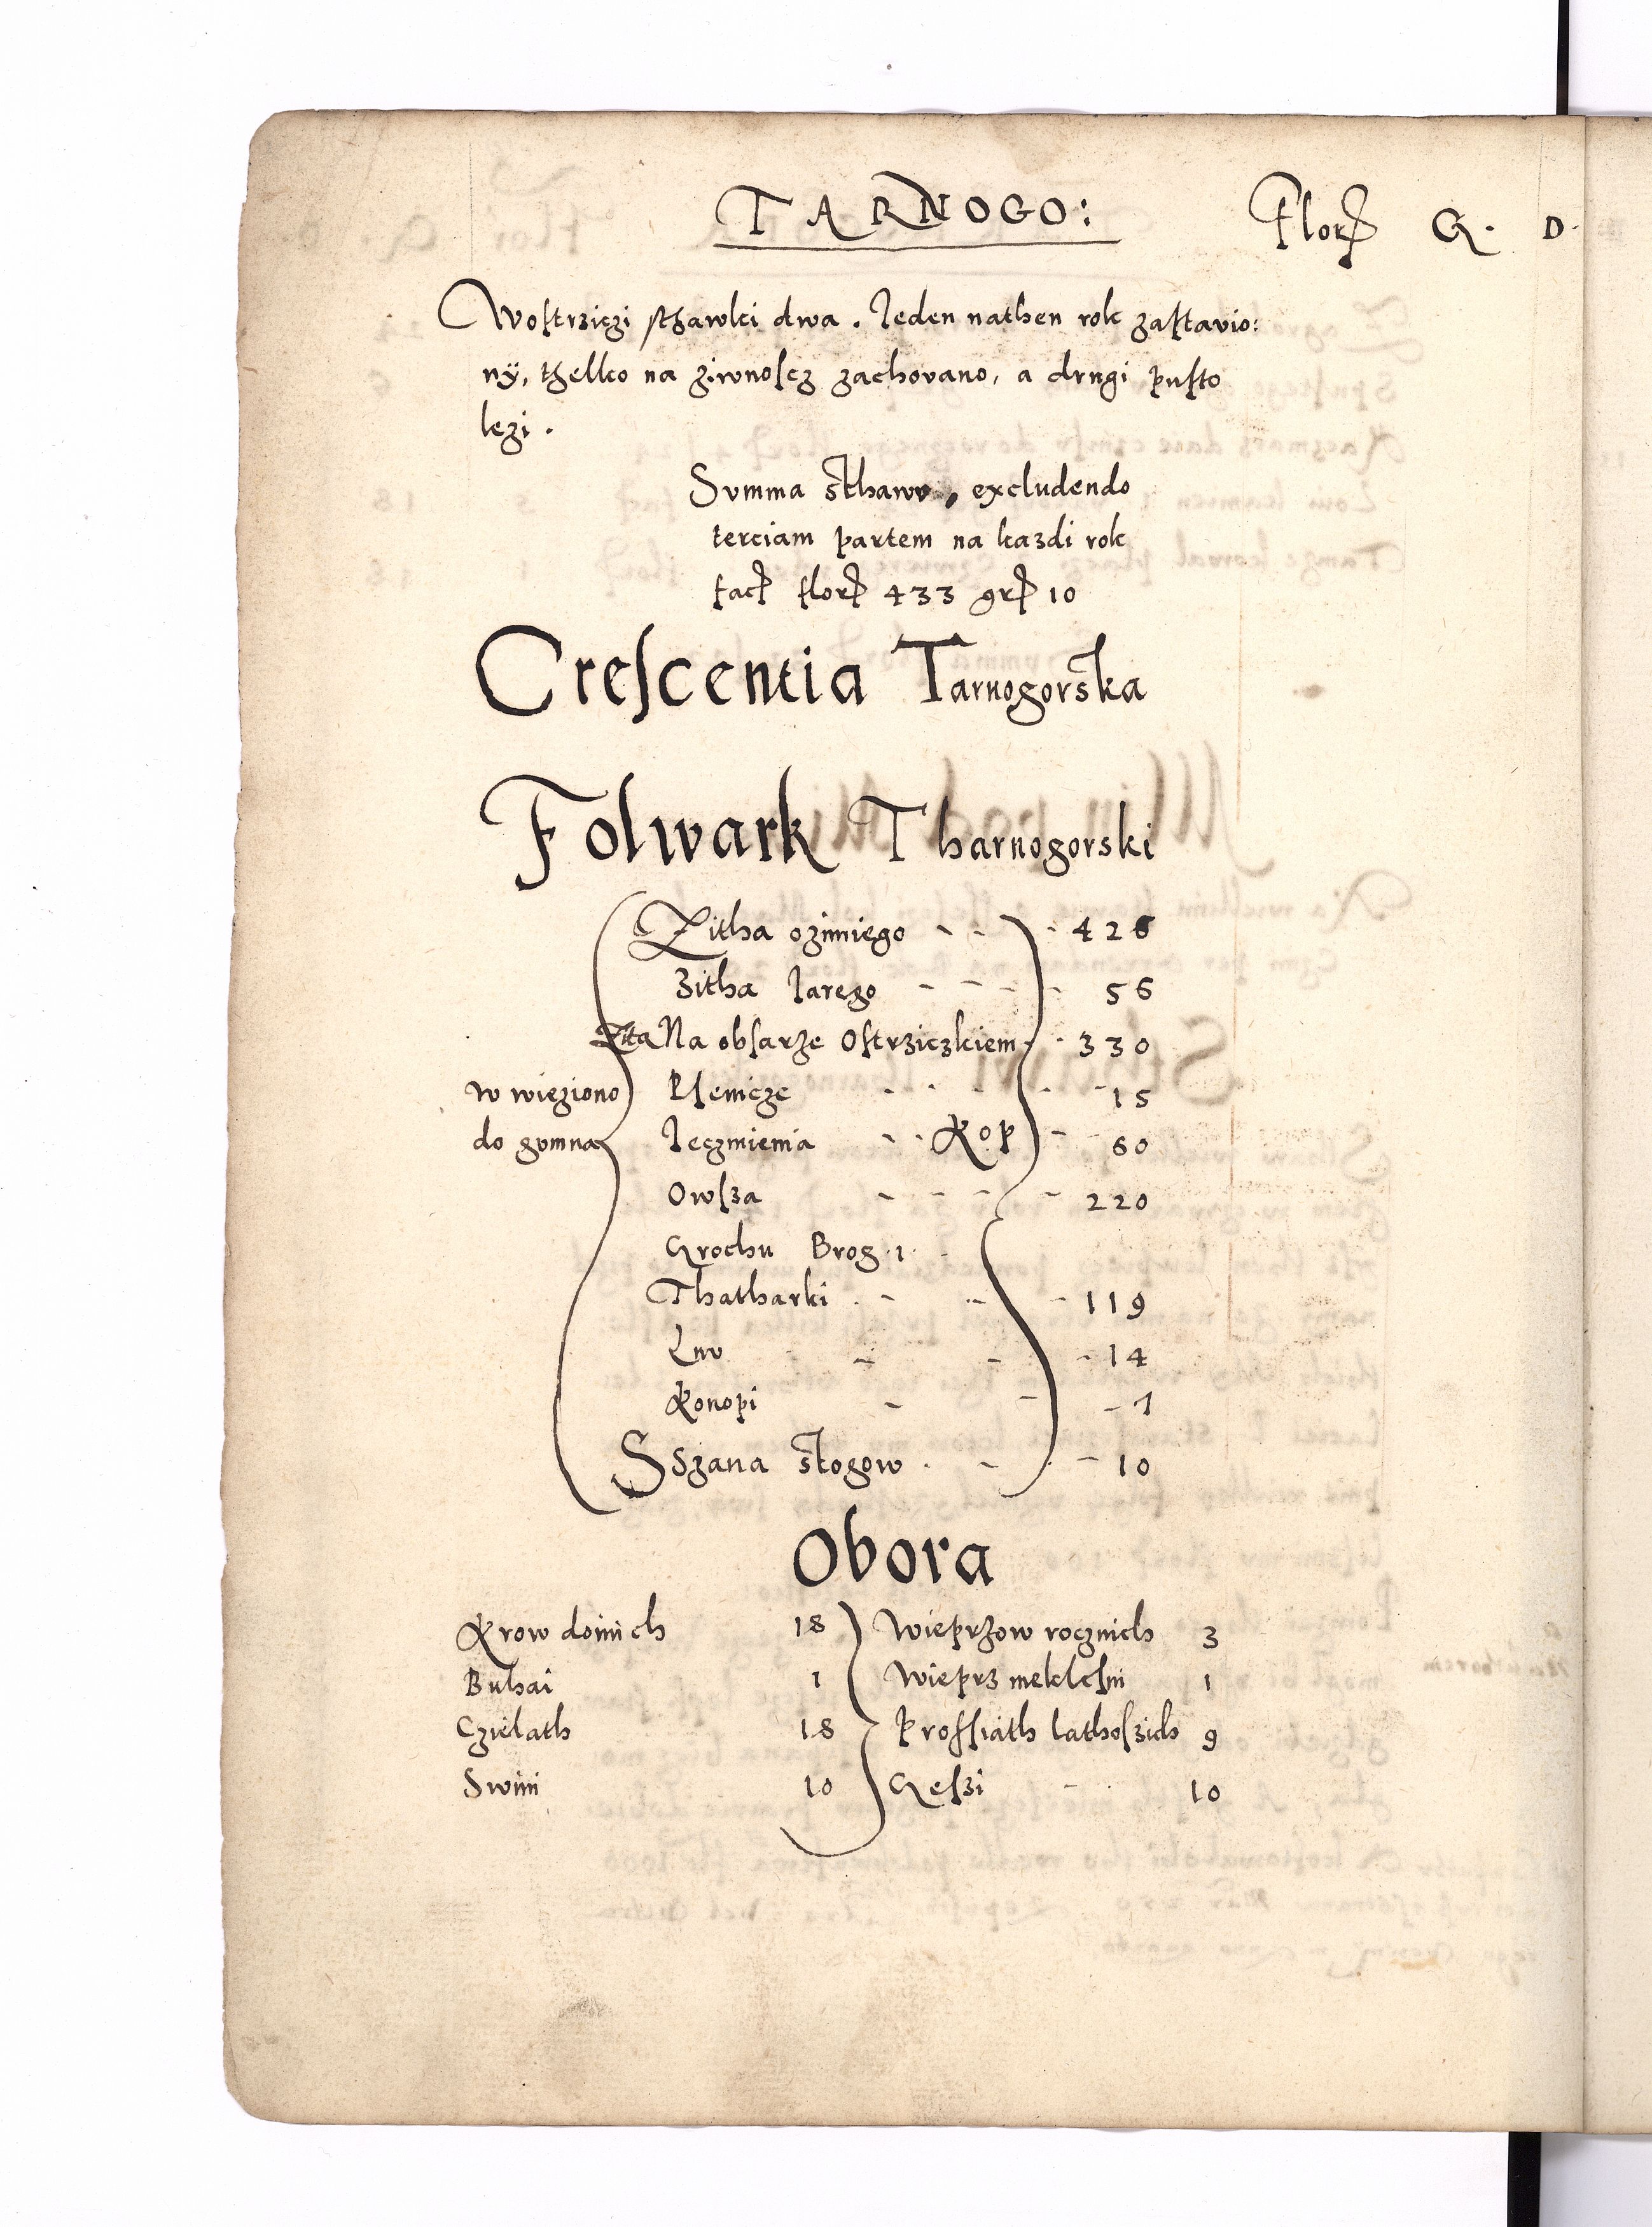 TARNOGO: Flor G. D.
Wostrziczi sthawki dwa. Ieden nathen rok zastavio:
ny, thelko na ziwnoscz zachovano, a drugi pusto
lezi.
Summa sthawu, excludendo
terciam partem na kazdi rok
fac flor 433 gr 10
Crescentia Tarnogorska
Folwark Tharnogorski
w wieziono
do gumna
Zitha oziminiego - - 426
Zitha Iarego - - - 56
Zita Na obsarze Ostrziczkiem 330
Psenicze - - - 15
Ieczmienia - Kop - 60
Owsza - - - 220
Grochu Brog 1
Thatharki - - 119
Lnu - - 14
Konopi - - 1
Sszana stogow - - 10
Obora
Krow doinich 18 Wieprzow rocznich 3
Buhai 1 Wieprz 1
Czielath 18 Prossiath lathoszich 9
Swini 10 Gęszi - 10